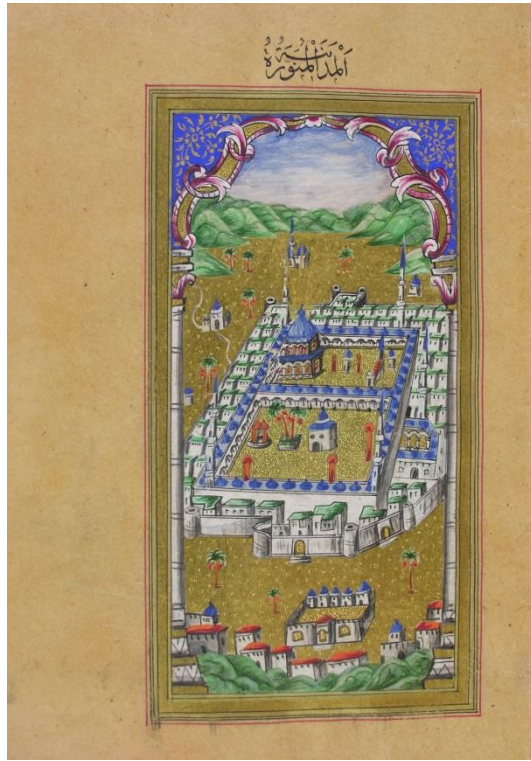 اَلْمَدِينَةُ الْمُنَوَّرَةُ